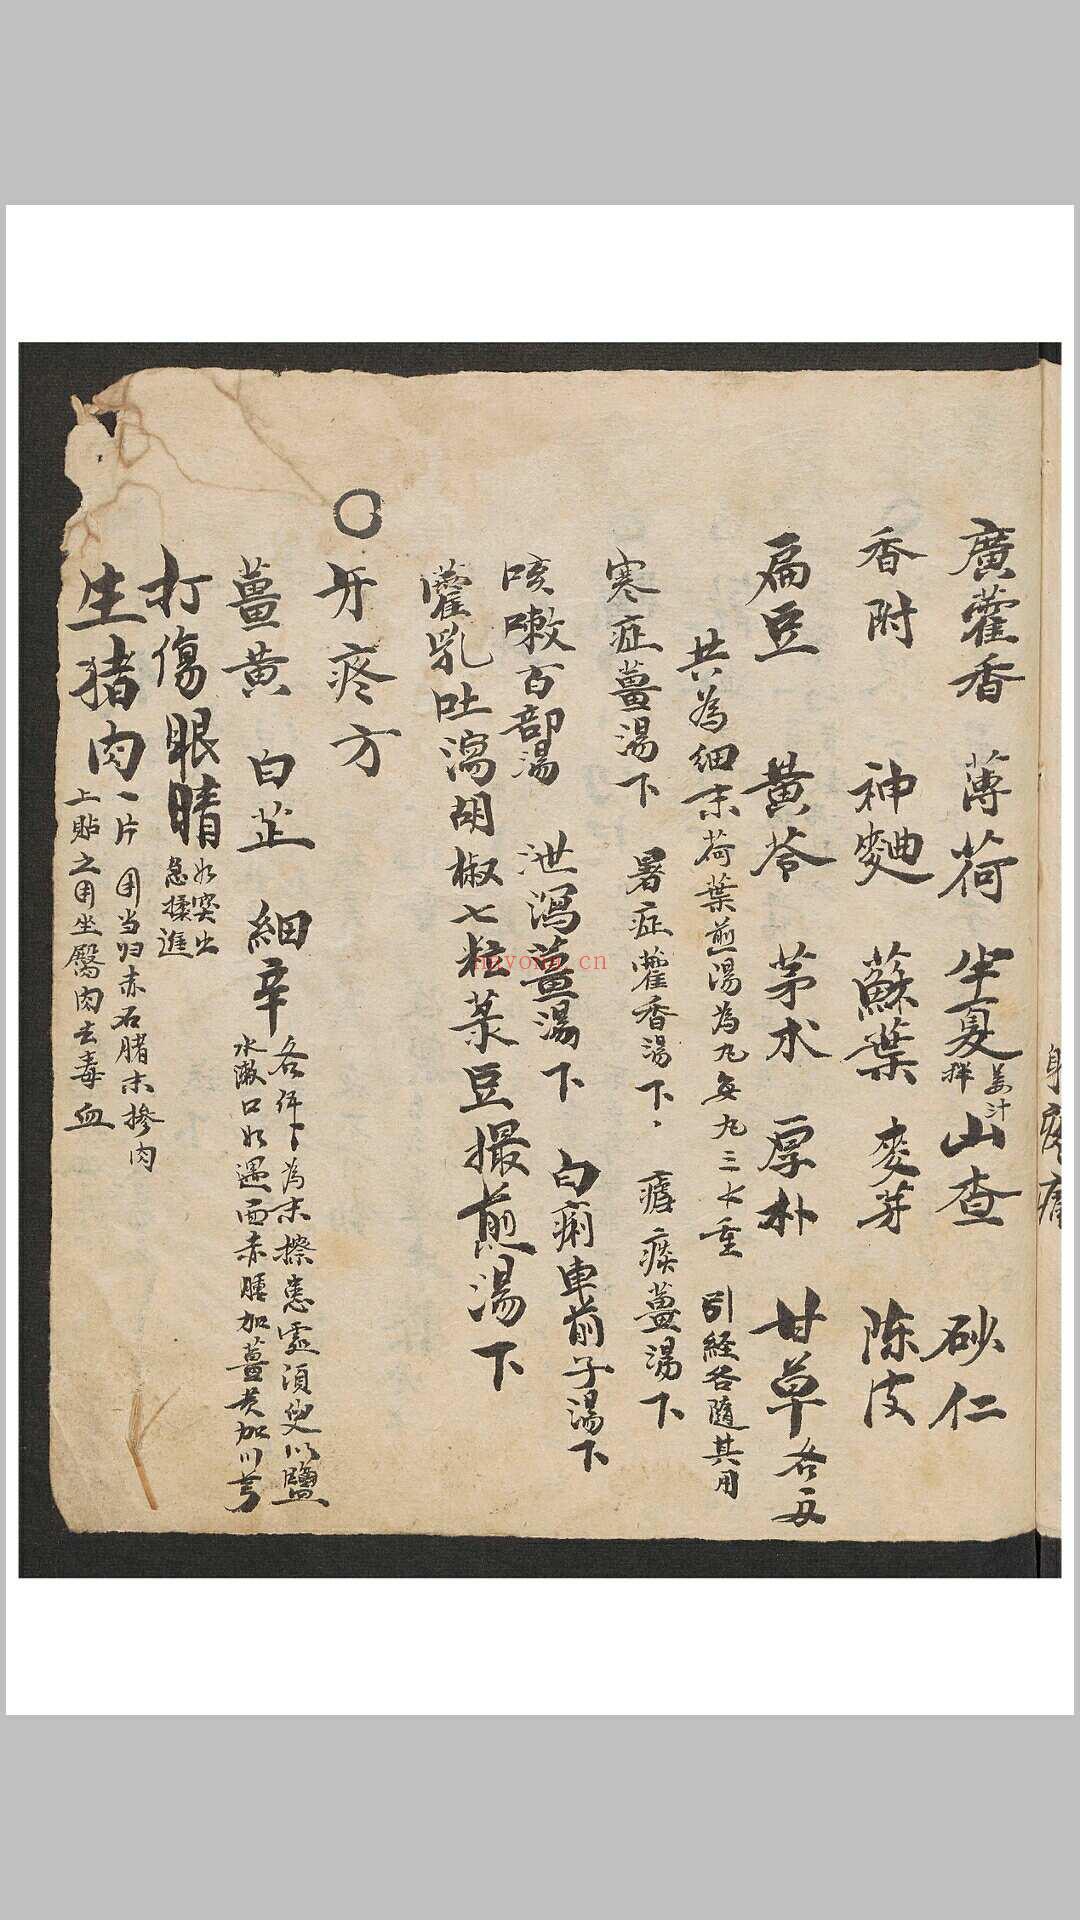 廣藿香 薄荷 半夏姜汁拌 山查 砂仁
香附 神麯 蘇葉 麥芽 陈皮
扁豆 黄苓 茅朮 厚朴 甘草各
共為細末荷葉煎湯為丸每丸三重 引経各隨其用
寒症薑湯下 暑症藿香湯下 瘧痰薑湯下
咳嗽百部湯 泄瀉薑湯下 白痢車前子湯下
藿乱吐瀉胡椒七粒菉豆撮煎湯下
〇牙疼方
薑黄 白芷 細辛各等下為末擦患處須臾以鹽
水漱口如遇面赤腫加薑黄加川芎
打傷眼睛如突出
急揉進
生猪肉一片 用当归赤石脂末摻肉
上貼之用坐醫肉去毒血
身疼痛
huyong.cn